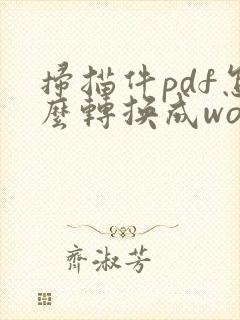 掃描件pdf怎
麼轉換成wo
齊淑芳